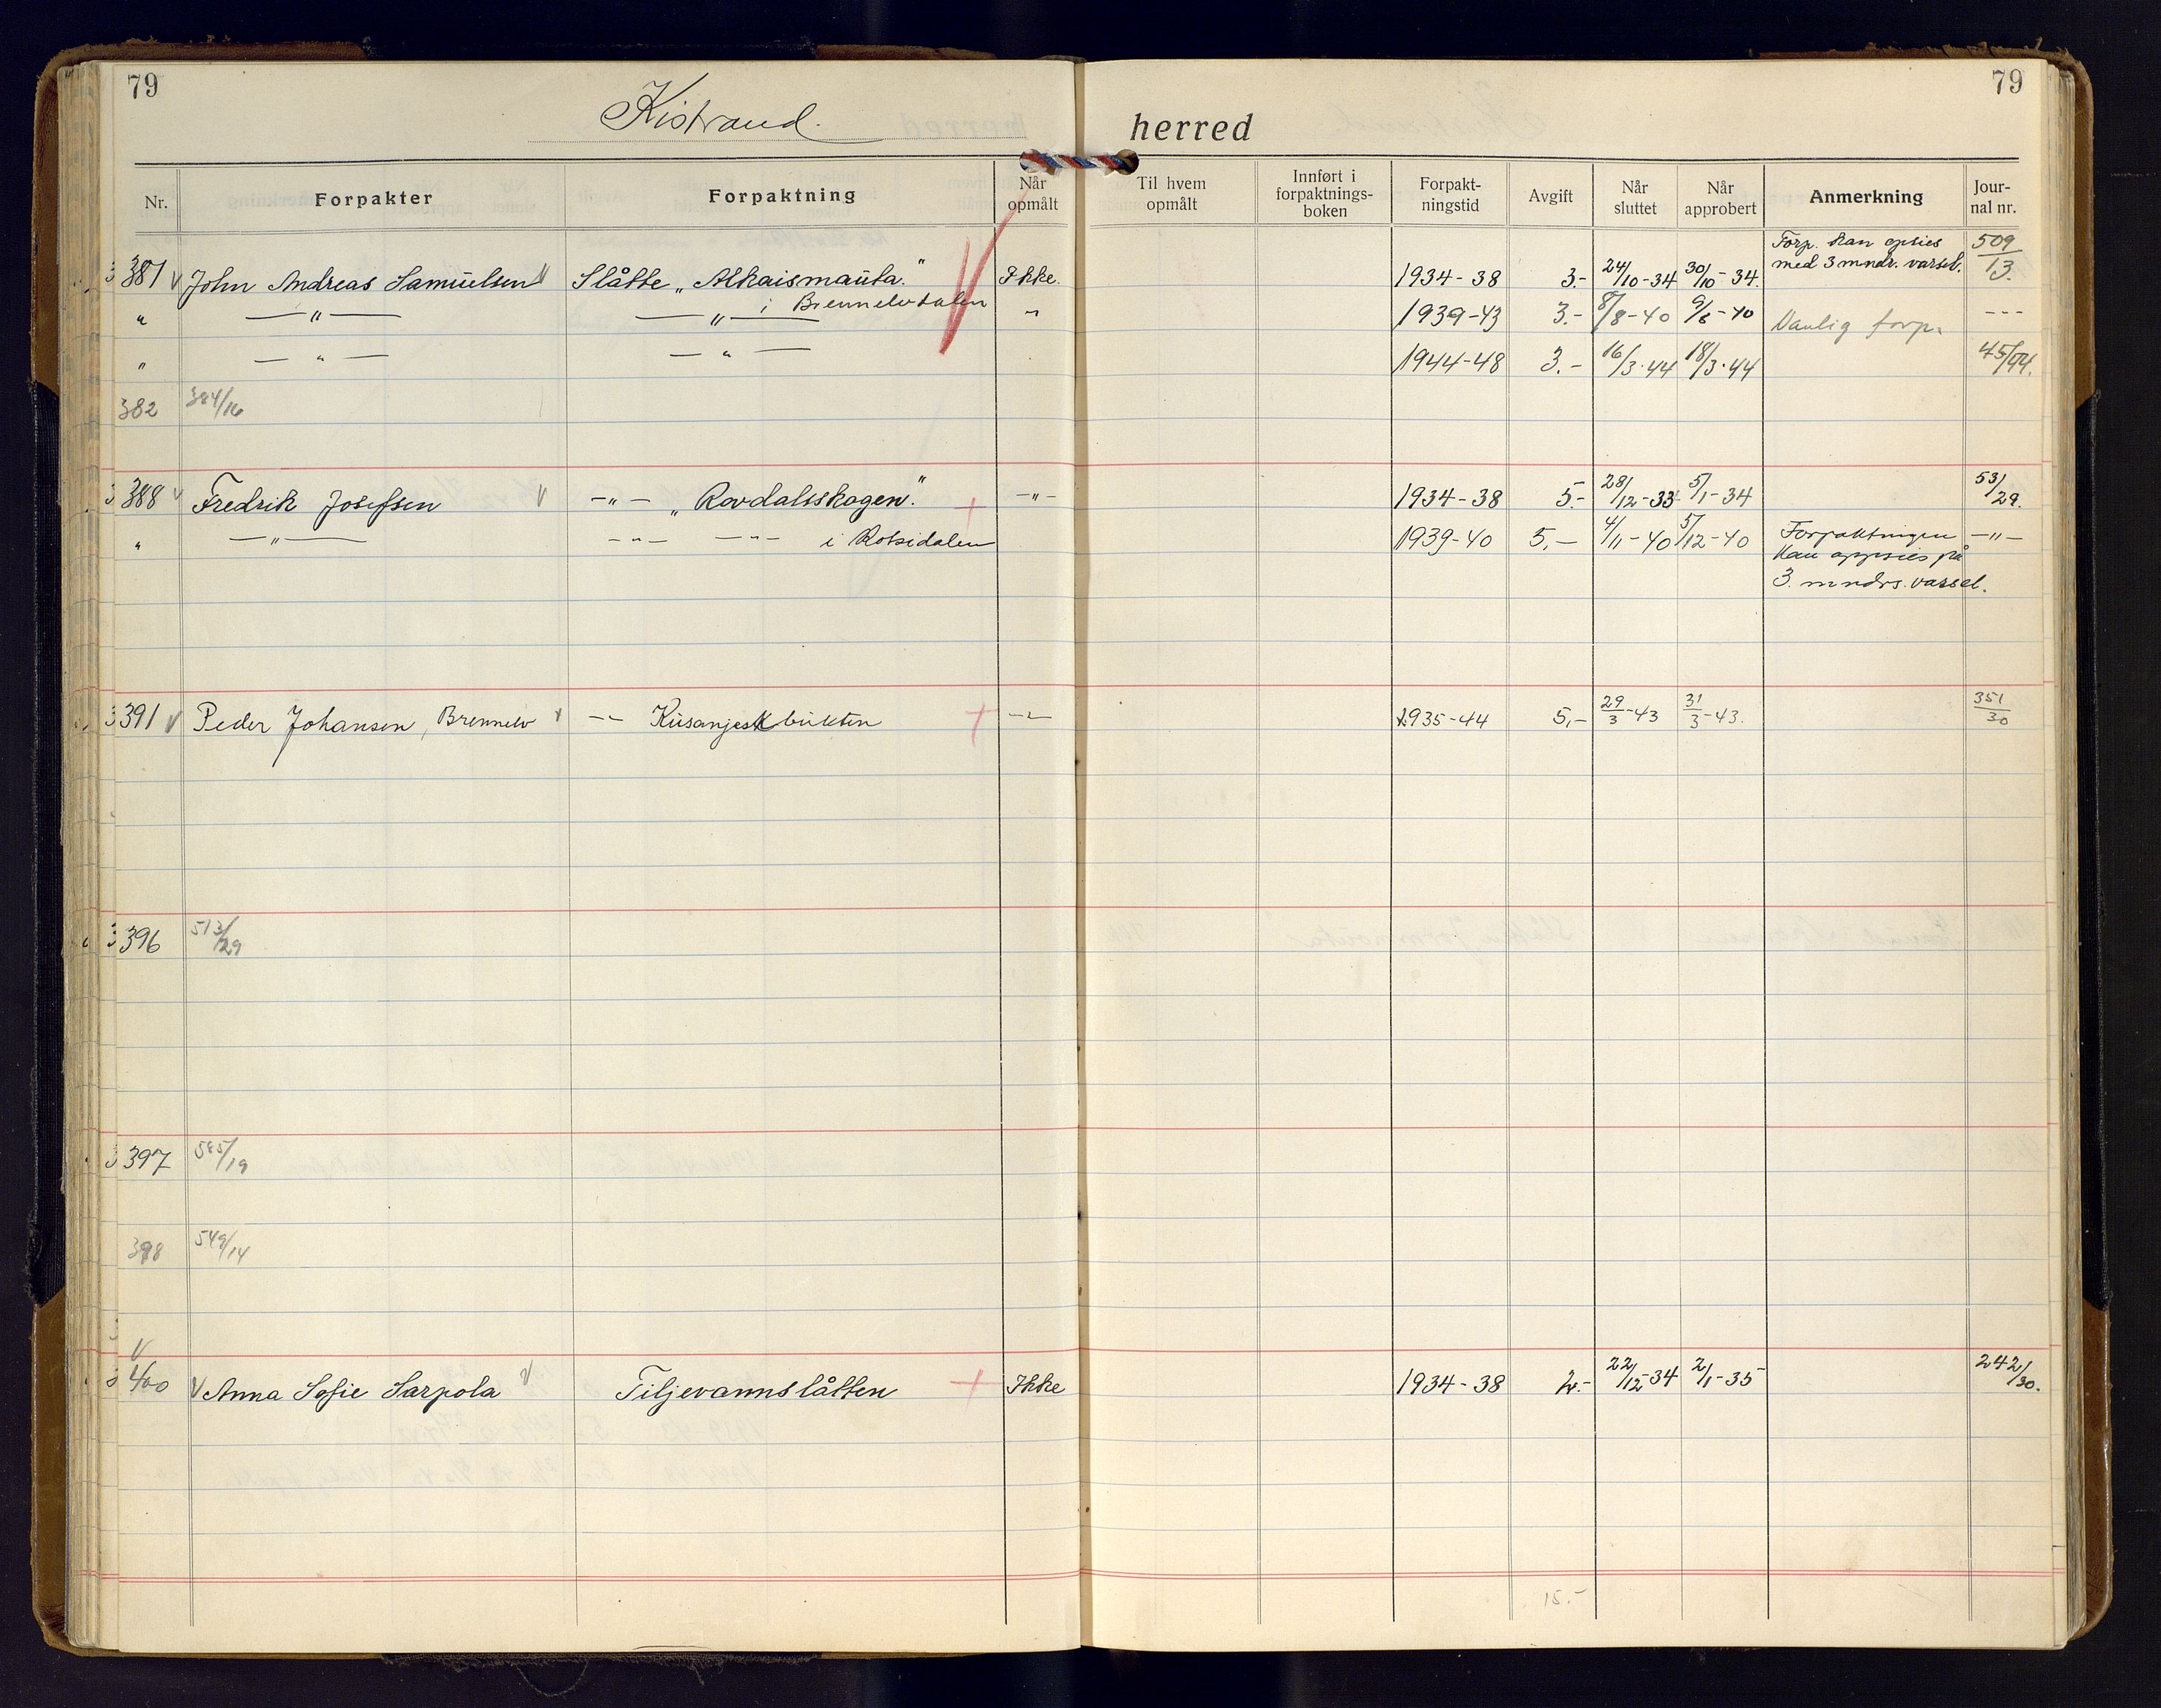 79
79
Kistrand.
herred
Nr. Forpakter Forpaktning Når opmålt Til hvem opmålt Innført i forpaktnings-boken Forpakt-ningstid Avgift Når sluttet Når approbert Anmerkning Jour-nal nr.
Forp. kan opsies 509/13.
381 John Andreas Samuelsen Slåtte „Alkaismauta." Ikke. 1934-38 3.- 24/10-34 30/10-34. med 3 mndr. varsel.
i Brennelvdalen
" —"— —"— " 1939-43 3.- 8/8-40 9/8-40 Vanlig forp. ---
" —"— —"— 1944-48 3.- 16/3.44 18/3.44 45/44.
382 384/16
388 Fredrik Josefsen -"- „Rovdalsskogen." -"- 1934-38 5.- 28/12-33 5/1-34 53/29.
" —"— -"- -"- i Rotsidalen 1939-40 5,- 4/11-40 5/12-40 Forpaktningen -"-
kan oppsies på
3. mndrs. varsel.
391 Peder Johansen, Brennelv -"- Kusanjeskbukten -"- 1935-44 5,- 29/3-43 31/3-43. 351/30
396 513/29
397 585/19
398 549/14
400 Anna Sofie Sarpola Tiljevannslåtten Ikke 1934-38 2.- 22/12-34 2/1-35 242/30.
15.-